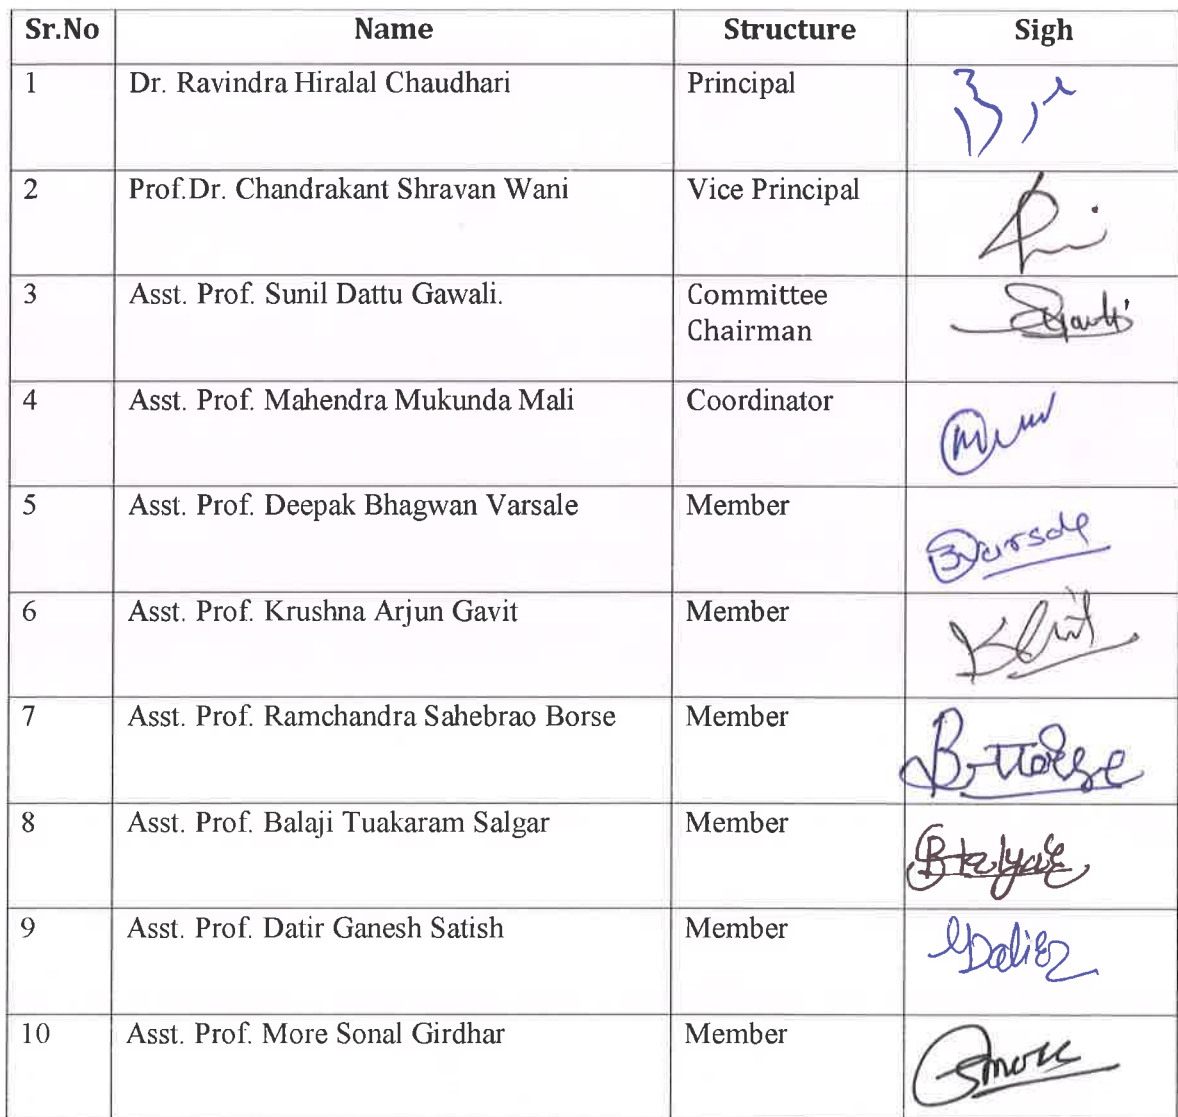 Sr.No Name Structure Sigh
1 Dr. Ravindra Hiralal Chaudhari Principal
2 Prof.Dr. Chandrakant Shravan Wani Vice Principal
3 Asst. Prof. Sunil Dattu Gawali. Committee
Chairman
4 Asst. Prof. Mahendra Mukunda Mali Coordinator
5 Asst. Prof. Deepak Bhagwan Varsale Member
6 Asst. Prof. Krushna Arjun Gavit Member
7 Asst. Prof. Ramchandra Sahebrao Borse Member
8 Asst. Prof. Balaji Tuakaram Salgar Member
9 Asst. Prof. Datir Ganesh Satish Member
10 Asst. Prof. More Sonal Girdhar Member